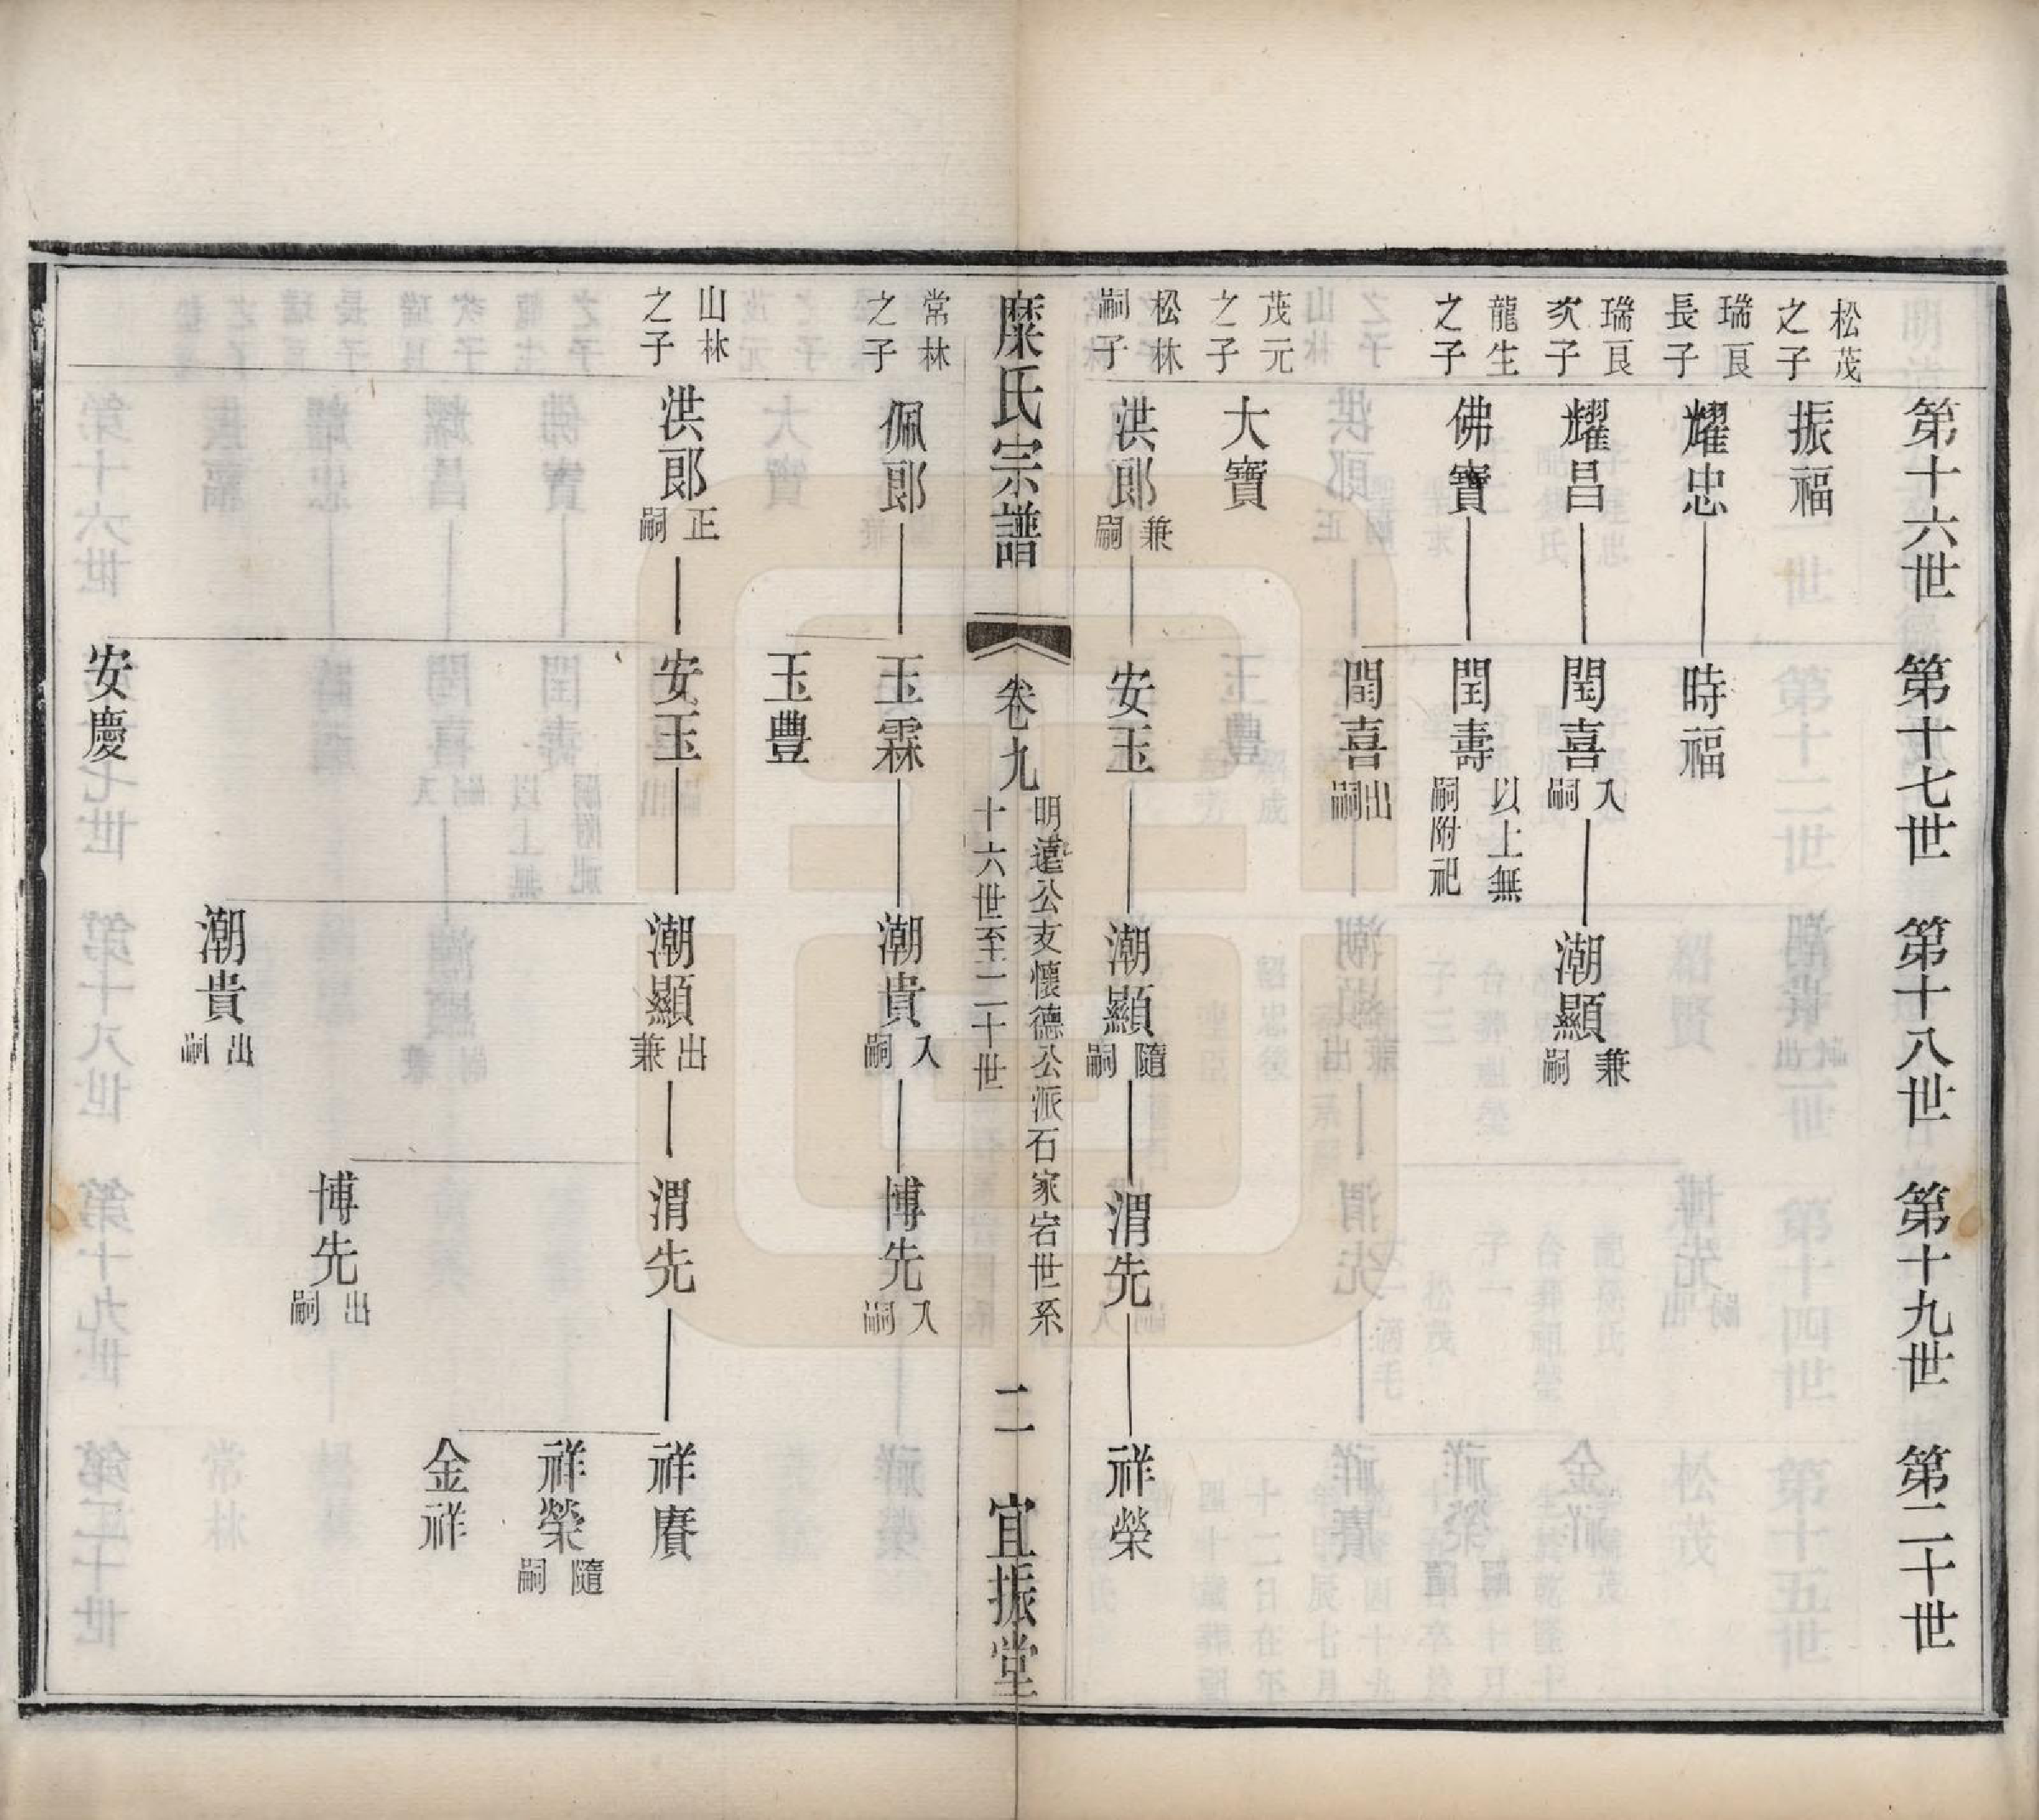 第十六世　第十七世　第十八世　第十九世　第二十世
松茂之子　振福
瑞良長子　耀忠　時福
瑞良次子　耀昌　閏喜入嗣　潮顯兼嗣
龍生之子　佛寶　閏壽以上無嗣附祀
閏喜出嗣
茂元之子　大寶
松林嗣子　洪郎兼嗣　安玉　潮顯隨嗣　渭先　祥榮
糜氏宗譜　卷九　明遠公支懷德公派石家宕世系十六世至二十世　二　宜振堂
常林之子　佩郎　玉霖　潮貴入嗣　博先入嗣
玉豐
山林之子　洪郎正嗣　安玉　潮顯出兼　渭先　祥賡
祥榮隨嗣
金祥
博先出嗣
潮貴出嗣
安慶